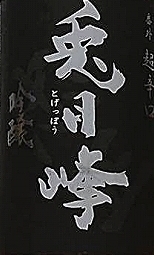 超辛口
兎月峰
とげっぽう
吟醸